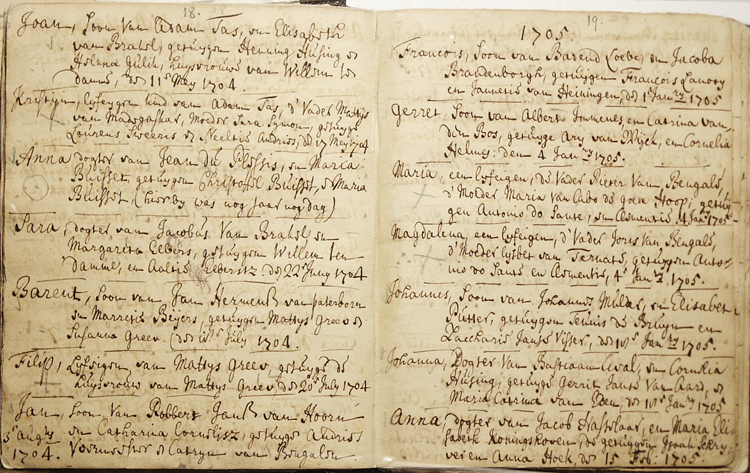 18.
Joan, Soon Van Adam Tas, en Elisabeth
van Brahel, getuygen Henning Hüsing &
Helena Gulik, Huysvrouw van Willem ten
Damme, den 11e May 1704.
kind van Adam Tas, d' Vader Mattijs
van Madagaskar, Moeder Sara Symon, getuyge
Lourens & Neeltie Andries, de 17 Mey 1704
Anna dogter van Jean du Plessis, en Maria
Buisset, getuygen Christoffel Buisset, & Maria
Buisset (hierby was nog jaar nog dag)
Sara, dogter van Jacobus Van Brahel en
Margareta Elbers, getuygen Willem ten
Damme, en Aaltie Elbertsz de 22e Juny 1704
Barent, Soon van Jan Hermensz van paterborn
en Marretie Beyers, getuygen Mattys Greev &
Susanna Greev. July 1704.
Filip, Lyfeigen van Mattys Greev, getuyge de
Huysvrouw van Mattys Greev de 20e July 1704
Jan, Soon Van Robbert Jansz van Hoorn
en Catharina Cornelisz, getuyge Andries
5e Augs 1704. Voermeester & Catryn van Bengalen.
19.
1705.
Francois, Soon van Barend en Jacoba
Brandenborgh, getuygen François
en Jannetie van Heiningen, de 1e Janry 1705
Gerret, Soon van Albert Immenes en Catrina van
den Bos, getuyge Ary van Wijck, en Cornelia
Helmes: den 4 Janry 1705.
Maria, een Lyfeigen, de Vader Pieter Van Bengale,
d' Moeder Maria van Cabo de goen Hoop, getuy-
gen Antonio de Sante, en 4 Janry 1705
Magdalena een lyfeigen, d' Vader Joris Van Bengale,
d' Moeder lysbet van Ternate, getuygen Anto-
nio do Sante en 4e Janry 1705.
Johannes, Soon van Johannes Mulder, en Elisabet
Putter, getuygen Teunis de Bruyn en
Zaccharis Janse Visser, de 18e Janry 1705
Johanna, Dogter Van Bastiaan en Cornelia
Hüsing, getuyge Gerrit Janse Van Aard, &
Maria Catrina van de 18e Janry 1705
Anna, dogter van Jacob en Maria Eli-
sabeth Koningshoven, de getuygen
ver en Anna Hoek, de 15 Feb. 1705